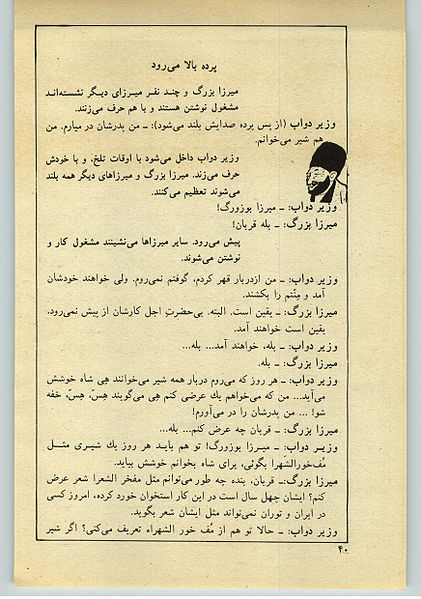 پرده بالا می‌رود
میرزا بزرگ و چند نفر میرزای دیگر نشسته‌اند
مشغول نوشتن هستند و با هم حرف می‌زنند.
وزیر دواب (از پس پرده صدایش بلند می‌شود): ـ من پدرشان در میارم. من
هم شیر می‌خوانم.
وزیر دواب داخل می‌شود با اوقات تلخ، و با خودش
حرف می‌زند. میرزا بزرگ و میرزاهای دیگر همه بلند
می‌شوند تعظیم می‌کنند.
وزیر دواب: ـ میرزا بوزورگ!
میرزا بزرگ: ـ بله قربان!
پیش می‌رود. سایر میرزاها می‌نشینند مشغول کار و
نوشتن می‌شوند.
وزیر دواب: ـ من ازدربار قهر کردم، گوفتم نمی‌روم. ولی خواهند خودشان
آمد و منّتم را بکشند.
میرزا بزرگ: ـ یقین است. البته. بی‌حضرت اجل کارشان از پیش نمی‌رود،
یقین است خواهند آمد.
وزیر دواب: ـ بله، خواهند آمد... بله...
میرزا بزرگ: ـ بله.
وزیر دواب: ـ هر روز که می‌روم دربار همه شیر می‌خوانند هِی شاه خوشش
می‌آید... من که می‌خواهم یك عرضی کنم هِی می‌گویند هِسْ، هِسْ، خفه
شو! ... من پدرشان را در می‌آورم!
میرزا بزرگ: ـ قربان چه عرض کنم... بله...
وزیر دواب: ـ میرزا بوزورگ! تو هم باید هر روز یك شیری مثل
مُف‌خورالشهرا بگوئی، برای شاه بخوانم خوشش بیاید.
میرزا بزرگ:ـ قربان، بنده چه طور می‌توانم مثل مفخر الشعرا شعر عرض
کنم؟ ایشان چهل سال است در این کار استخوان خورد کرده، امروز کسی
در ایران و توران نمی‌تواند مثل ایشان شعر بگوید.
وزیر دواب: ـ حالا تو هم از مُف خور الشهراء تعریف می‌کنی؟ اگر شیر
۴۰